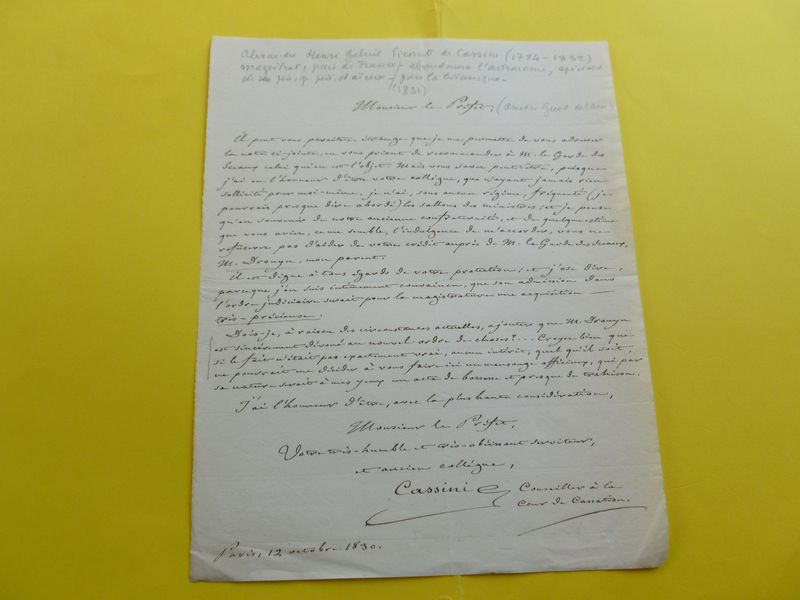 Alexandre Henri Gabriel Vicomte de Cassini (1784-1832)
magistrat, pair de France, abandonna l'astronomie, spécialité
de ses père, gd père, et aïeux - pour la botanique -
(1831)
Monsieur le Préfet,
Il peut vous paraître étrange que je me permette de vous adresser
la note ci-jointe, en vous priant de recommander à M. le Garde des
Sceaux celui qui en est l'objet. Mais vous savez peut-être, puisque
j'ai eu l'honneur d'être votre collègue, que n'ayant jamais rien
sollicité pour moi-même, je n'ai, sous aucun régime, fréquenté (je
pourrais presque dire abordé) les sallons des ministères; et je pense
qu'en souvenir de notre ancienne confraternité, et de quelque estime
que vous aviez, ce me semble, l'indulgence de m'accorder, vous ne
refuserez pas d'aider de votre crédit auprès de M. le Garde des Sceaux,
M. Drouyn, mon parent.
Il est digne à tous égards de votre protection; et j'ose dire,
parceque j'en suis intimement convaincu, que son admission dans
l'ordre judiciaire serait pour la magistrature une acquisition
très-précieuse.
Dois-je, à raison des circonstances actuelles, ajouter que M. Drouyn
est sincèrement dévoué au nouvel ordre de choses?... Croyez bien que
si le fait n'était pas exactement vrai, aucun intérêt, quel qu'il soit,
ne pourrait me décider à vous faire ici un mensonge officieux, qui par
sa nature serait à mes yeux un acte de bassesse et presque de trahison.
J'ai l'honneur d'être, avec la plus haute considération,
Monsieur le Préfet,
Votre très-humble et très-obéissant serviteur,
et ancien collègue,
Cassini Conseiller à la
Cour de Cassation.
Paris, 12 octobre 1830.